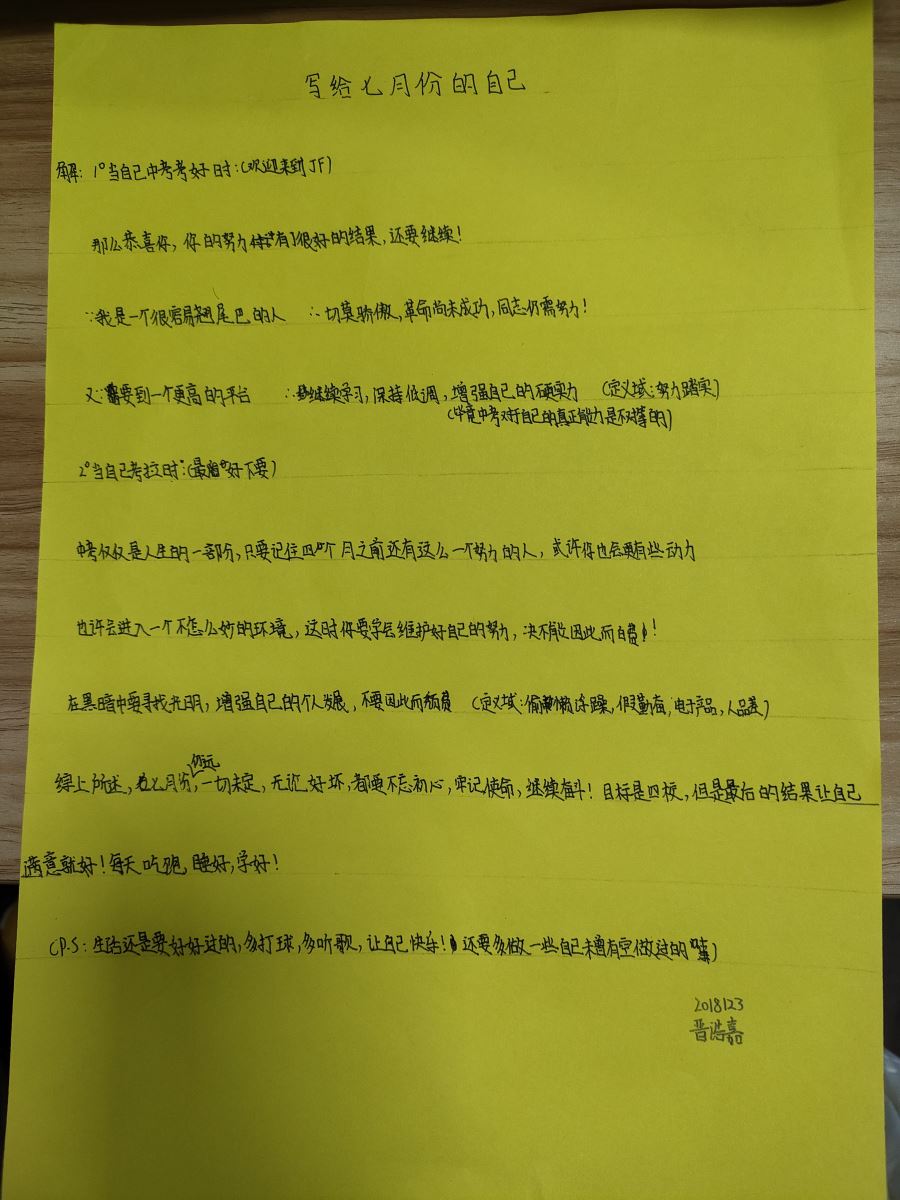 写给七月份的自己
解：1°当自己中考考好时：(欢迎来到JF)
那么恭喜你，你的努力有了很好的结果，还要继续！
∵我是一个很容易翘尾巴的人 ∴一切莫骄傲，革命尚未成功，同志仍需努力！
又∵需要到一个更高的平台 ∴继续学习，保持低调，增强自己的硬实力 (定义域：努力踏实)
(毕竟中考对于自己的真正能力是不对等的)
2°当自己考拉时：(最好不要)
中考仅仅是人生的一部份，只要记住四个月之前还有这么一个努力的人，或许你也会更有些动力
也许会进入一个不怎么妙的环境，这时你要学会维护好自己的努力，决不能因此而白费！
在黑暗中要寻找光明，增强自己的个人发展，不要因此而颓费 (定义域：偷懒浮躁，假勤奋，电子产品，人品差)
综上所述，七月份你远一切未定，无论好坏，都要不忘初心，牢记使命，继续奋斗！目标是四校，但是最后的结果让自己
满意就好！每天吃饱，睡好，学好！
(P.S：生活还是要好好过的，多打球，多听歌，让自己快乐！还要多做一些自己未曾有空做过的事)
2018123
晋浩嘉